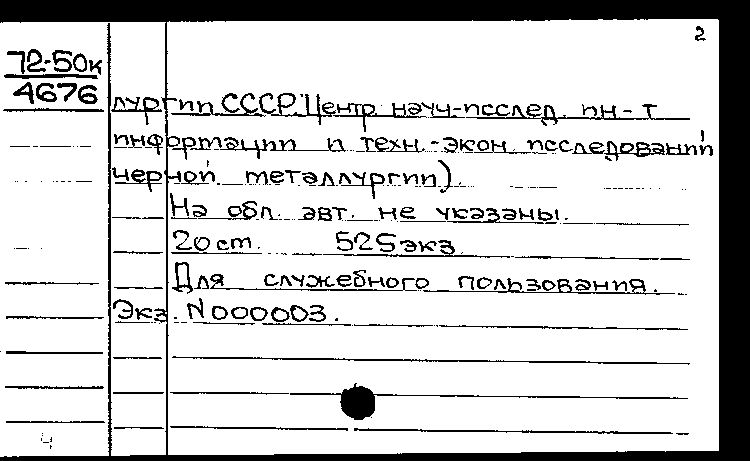 2
72-50к
4676
лургии СССР. Центр науч-исслед. ин-т
информации и техн.-экон. исследований
черной металлургии).
На обл. авт. не указаны.
20 ст. 525 экз.
Для служебного пользования.
Экз. N 000003.
4